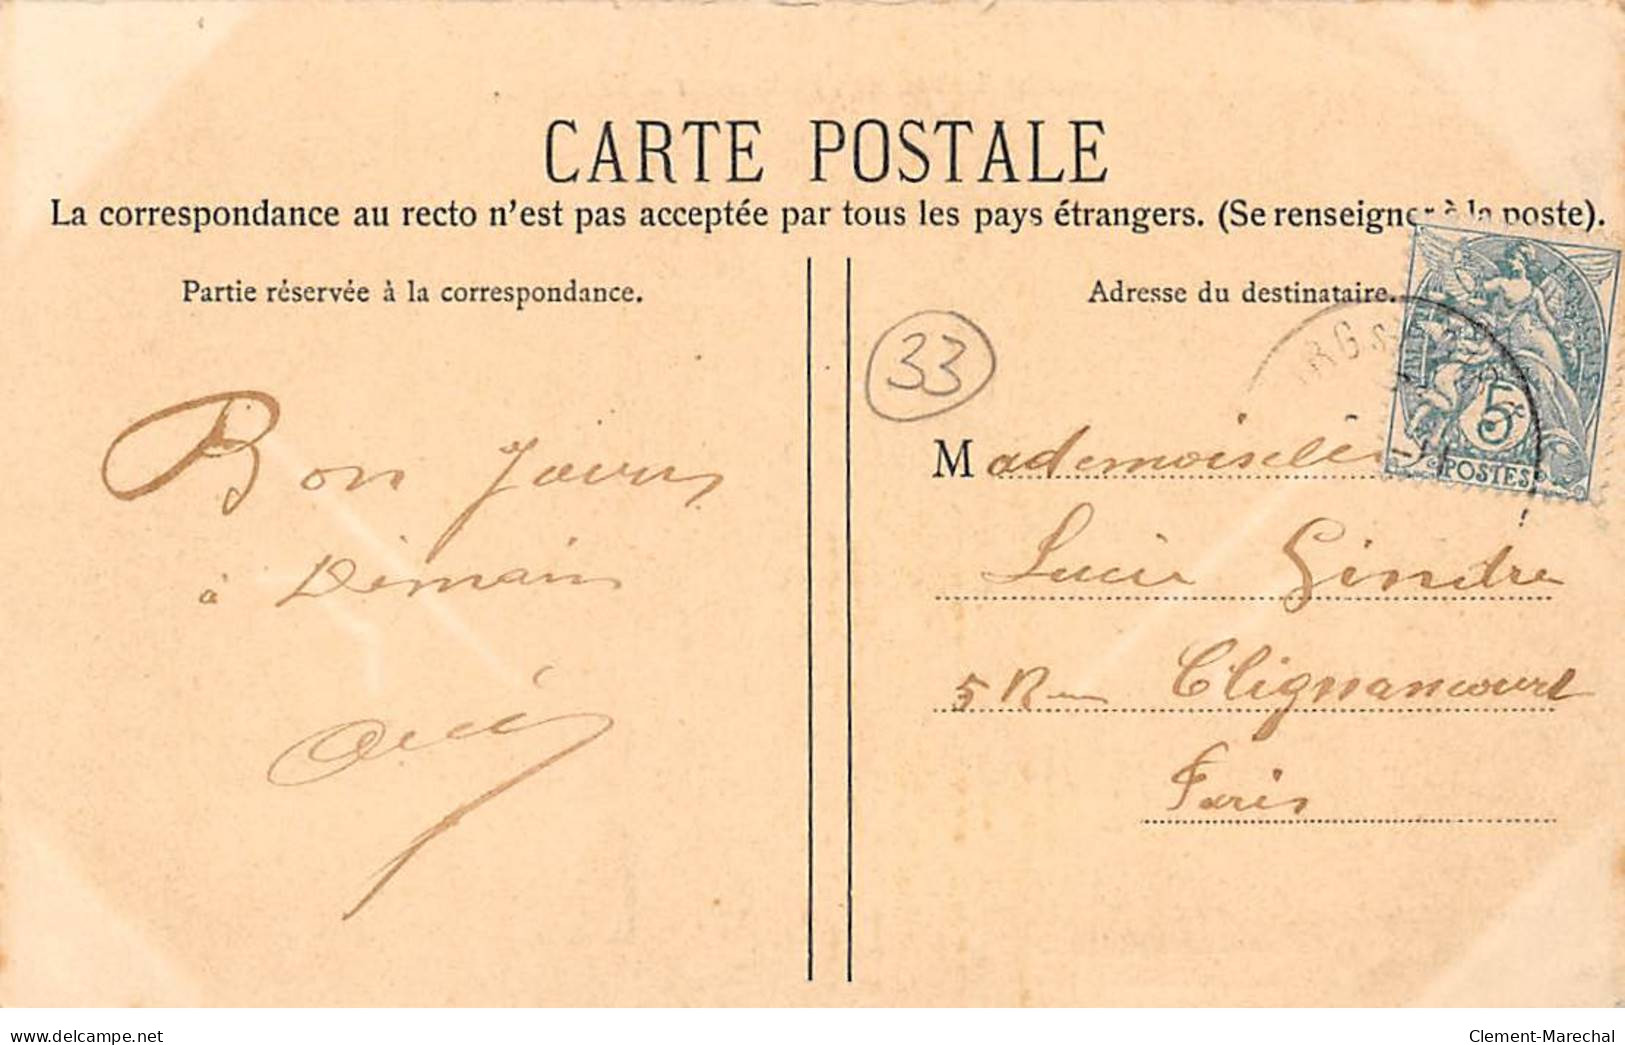 CARTE POSTALE
La correspondance au recto n'est pas acceptée par tous les pays étrangers. (Se renseigner à la poste).
Partie réservée à la correspondance.
Bon Jours
à Demain
Adresse du destinataire.
33
Mademoiselle
Lucie Gindre
5 Rue Clignancourt
Paris
5c
POSTES
delcampe.net
Clement-Marechal